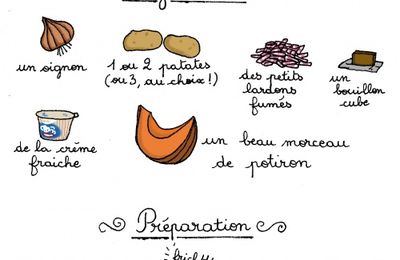 un oignon
1 ou 2 patates
(ou 3, au choix!)
des petits
lardons
fumés
un
bouillon
cube
de la crème
fraiche
un beau morceau
de potiron
Préparation